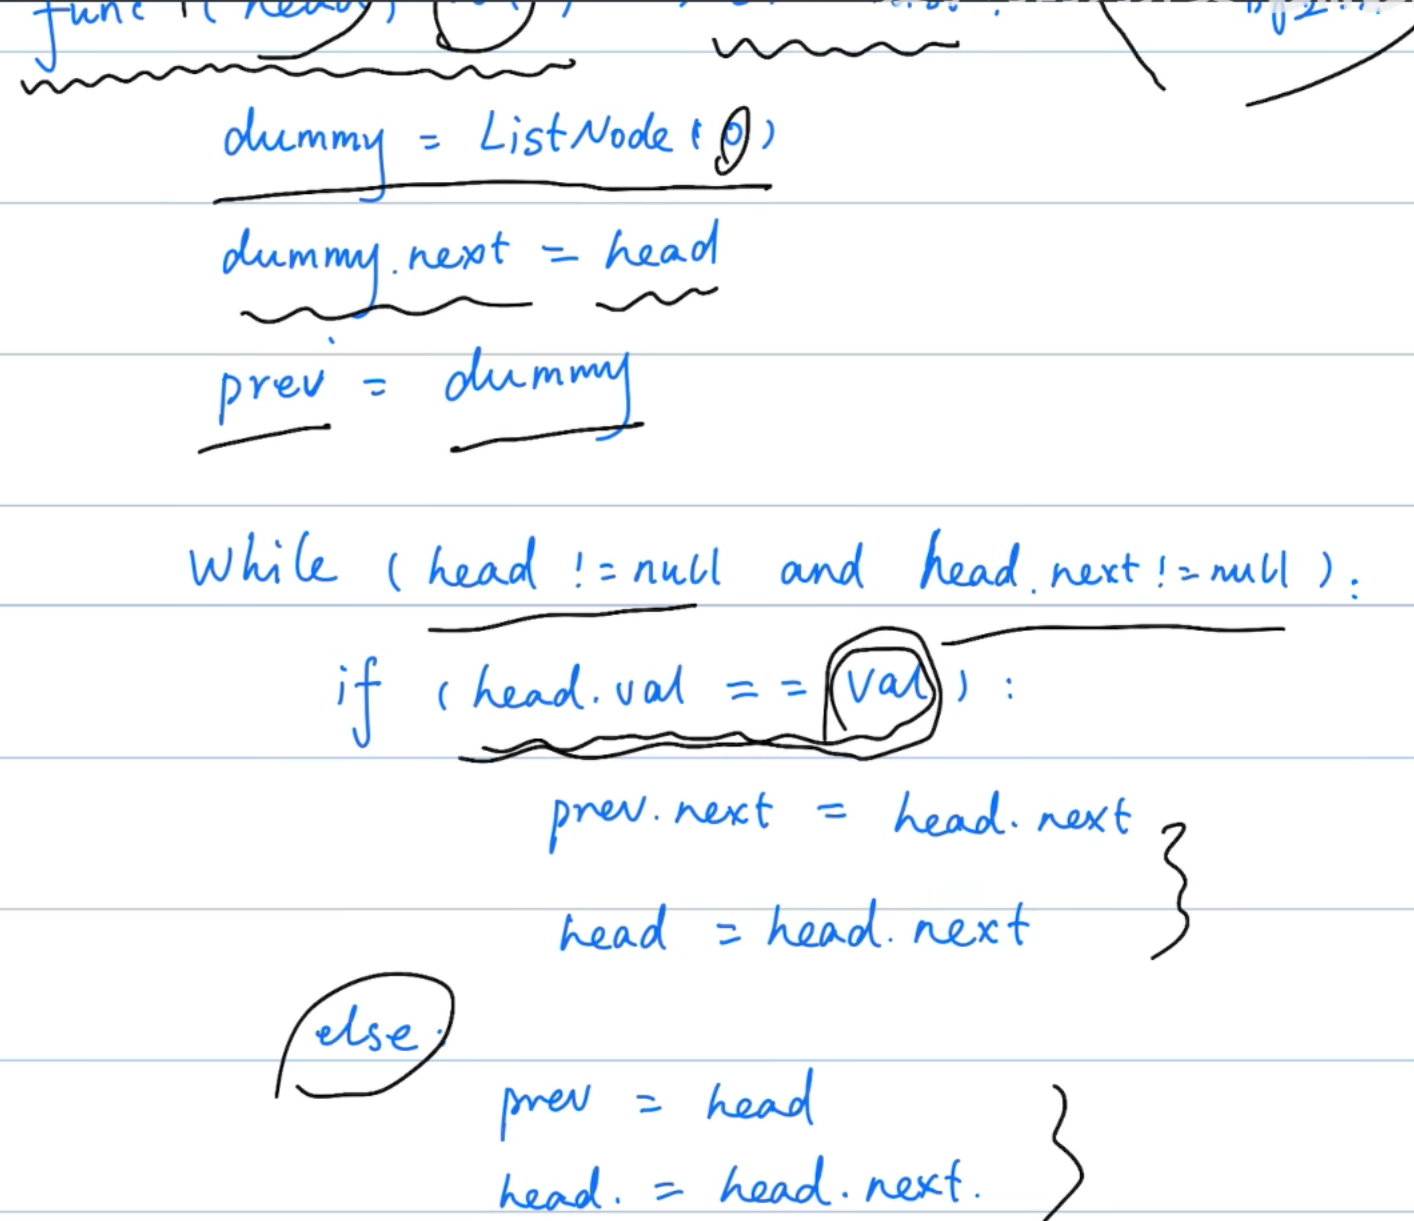 func (head,
dummy = ListNode(0)
dummy.next = head
prev = dummy
while (head != null and head.next != null):
if (head.val == val):
prev.next = head.next
head = head.next
else:
prev = head
head. = head.next.